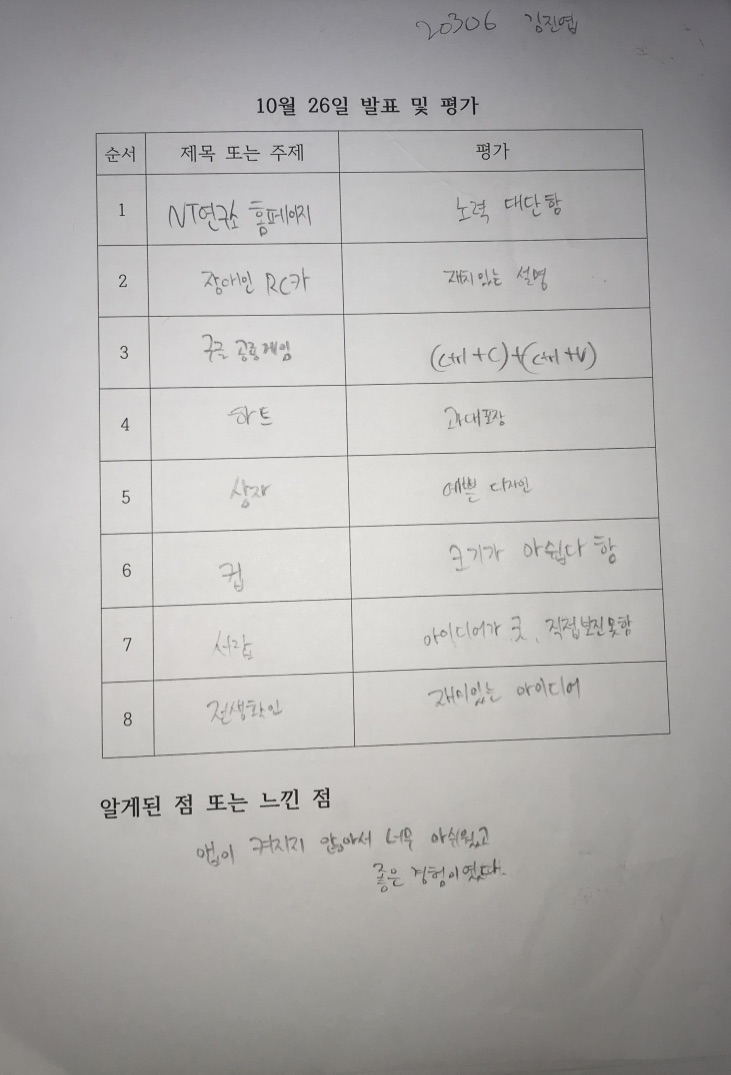 20306 김진엽
10월 26일 발표 및 평가
순서 제목 또는 주제 평가
1 NT연구소 홈페이지 노력 대단함
2 장애인 RC카 재치있는 설명
3 구글 공룡게임 (ctrl+C)+(ctrl+V)
4 하트 과대포장
5 상자 예쁜 디자인
6 컵 크기가 아쉽다 함
7 서랍 아이디어가 굿, 직접보진못함
8 전생확인 재미있는 아이디어
알게된 점 또는 느낀 점
앱이 켜지지 않아서 너무 아쉬웠고
좋은 경험이였다.